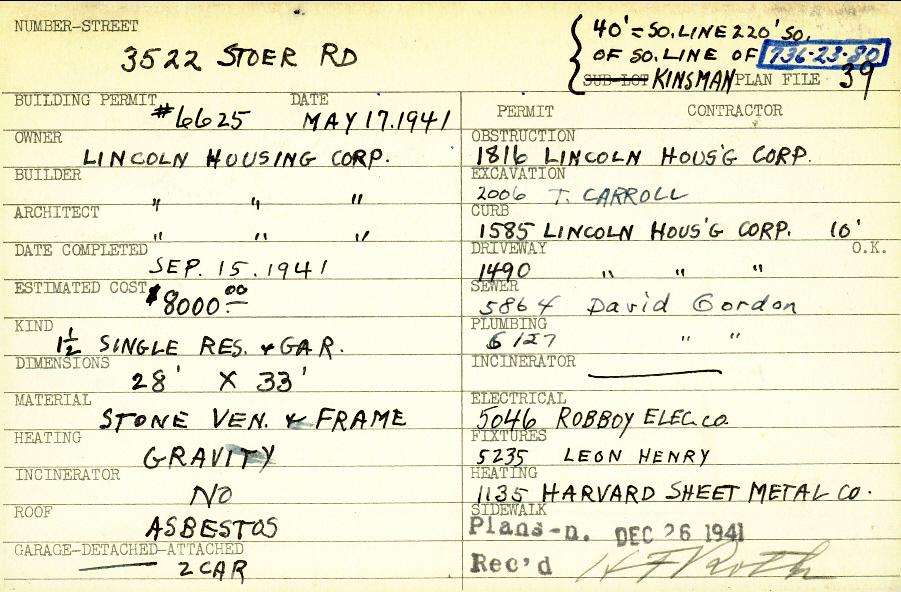 NUMBER-STREET
3522 STOER RD
40' = SO. LINE 220' SO.
OF SO. LINE OF 736-23-80
SUB-LOT KINSMAN PLAN FILE 39
BUILDING PERMIT DATE
#6625 MAY 17. 1941
OWNER
LINCOLN HOUSING CORP.
BUILDER
" " "
ARCHITECT
" " "
DATE COMPLETED
SEP. 15. 1941
ESTIMATED COST
$8000.00
KIND
1½ SINGLE RES. & GAR.
DIMENSIONS
28' X 33'
MATERIAL
STONE VEN. & FRAME
HEATING
GRAVITY
INCINERATOR
NO
ROOF
ASBESTOS
GARAGE-DETACHED-ATTACHED
2 CAR
PERMIT CONTRACTOR
OBSTRUCTION
1816 LINCOLN HOUS'G CORP.
EXCAVATION
2006 T. CARROLL
CURB
1585 LINCOLN HOUS'G CORP. 10'
DRIVEWAY O.K.
1490 " " "
SEWER
5864 David Gordon
PLUMBING
6127 " "
INCINERATOR
ELECTRICAL
5046 ROBBOY ELEC. CO.
FIXTURES
5235 LEON HENRY
HEATING
1135 HARVARD SHEET METAL CO.
SIDEWALK
Plans-n. DEC 26 1941
Rec'd H F Roth